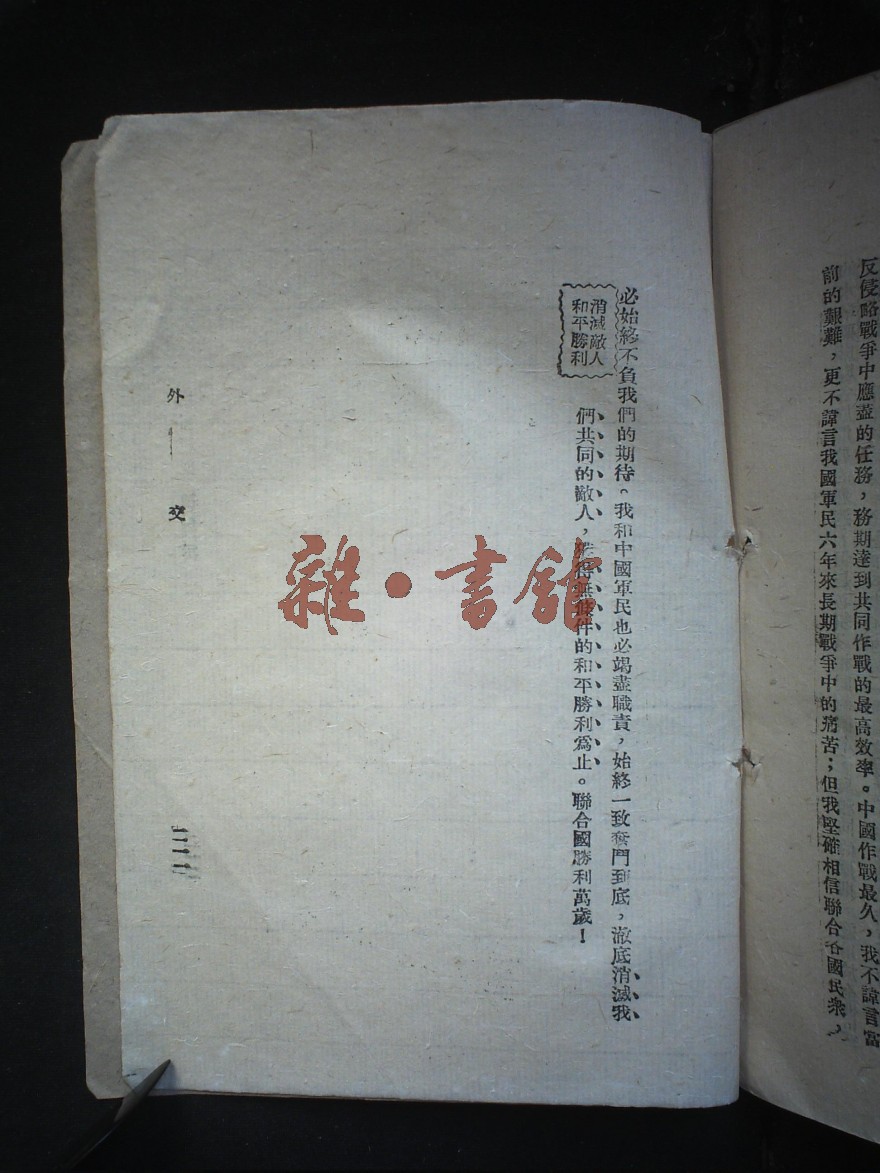 反侵略戰爭中應盡的任務，務期達到共同作戰的最高效率。中國作戰最久，我不諱言當
前的艱難，更不諱言我國軍民六年來長期戰爭中的痛苦；但我堅確相信聯合各國民衆，
必始終不負我們的期待。我和中國軍民也必竭盡職責，始終一致奮鬥到底，澈底消滅我
消滅敵人
和平勝利
們共同的敵人，獲得無條件的和平勝利爲止。聯合國勝利萬歲！
外交
雜·書館